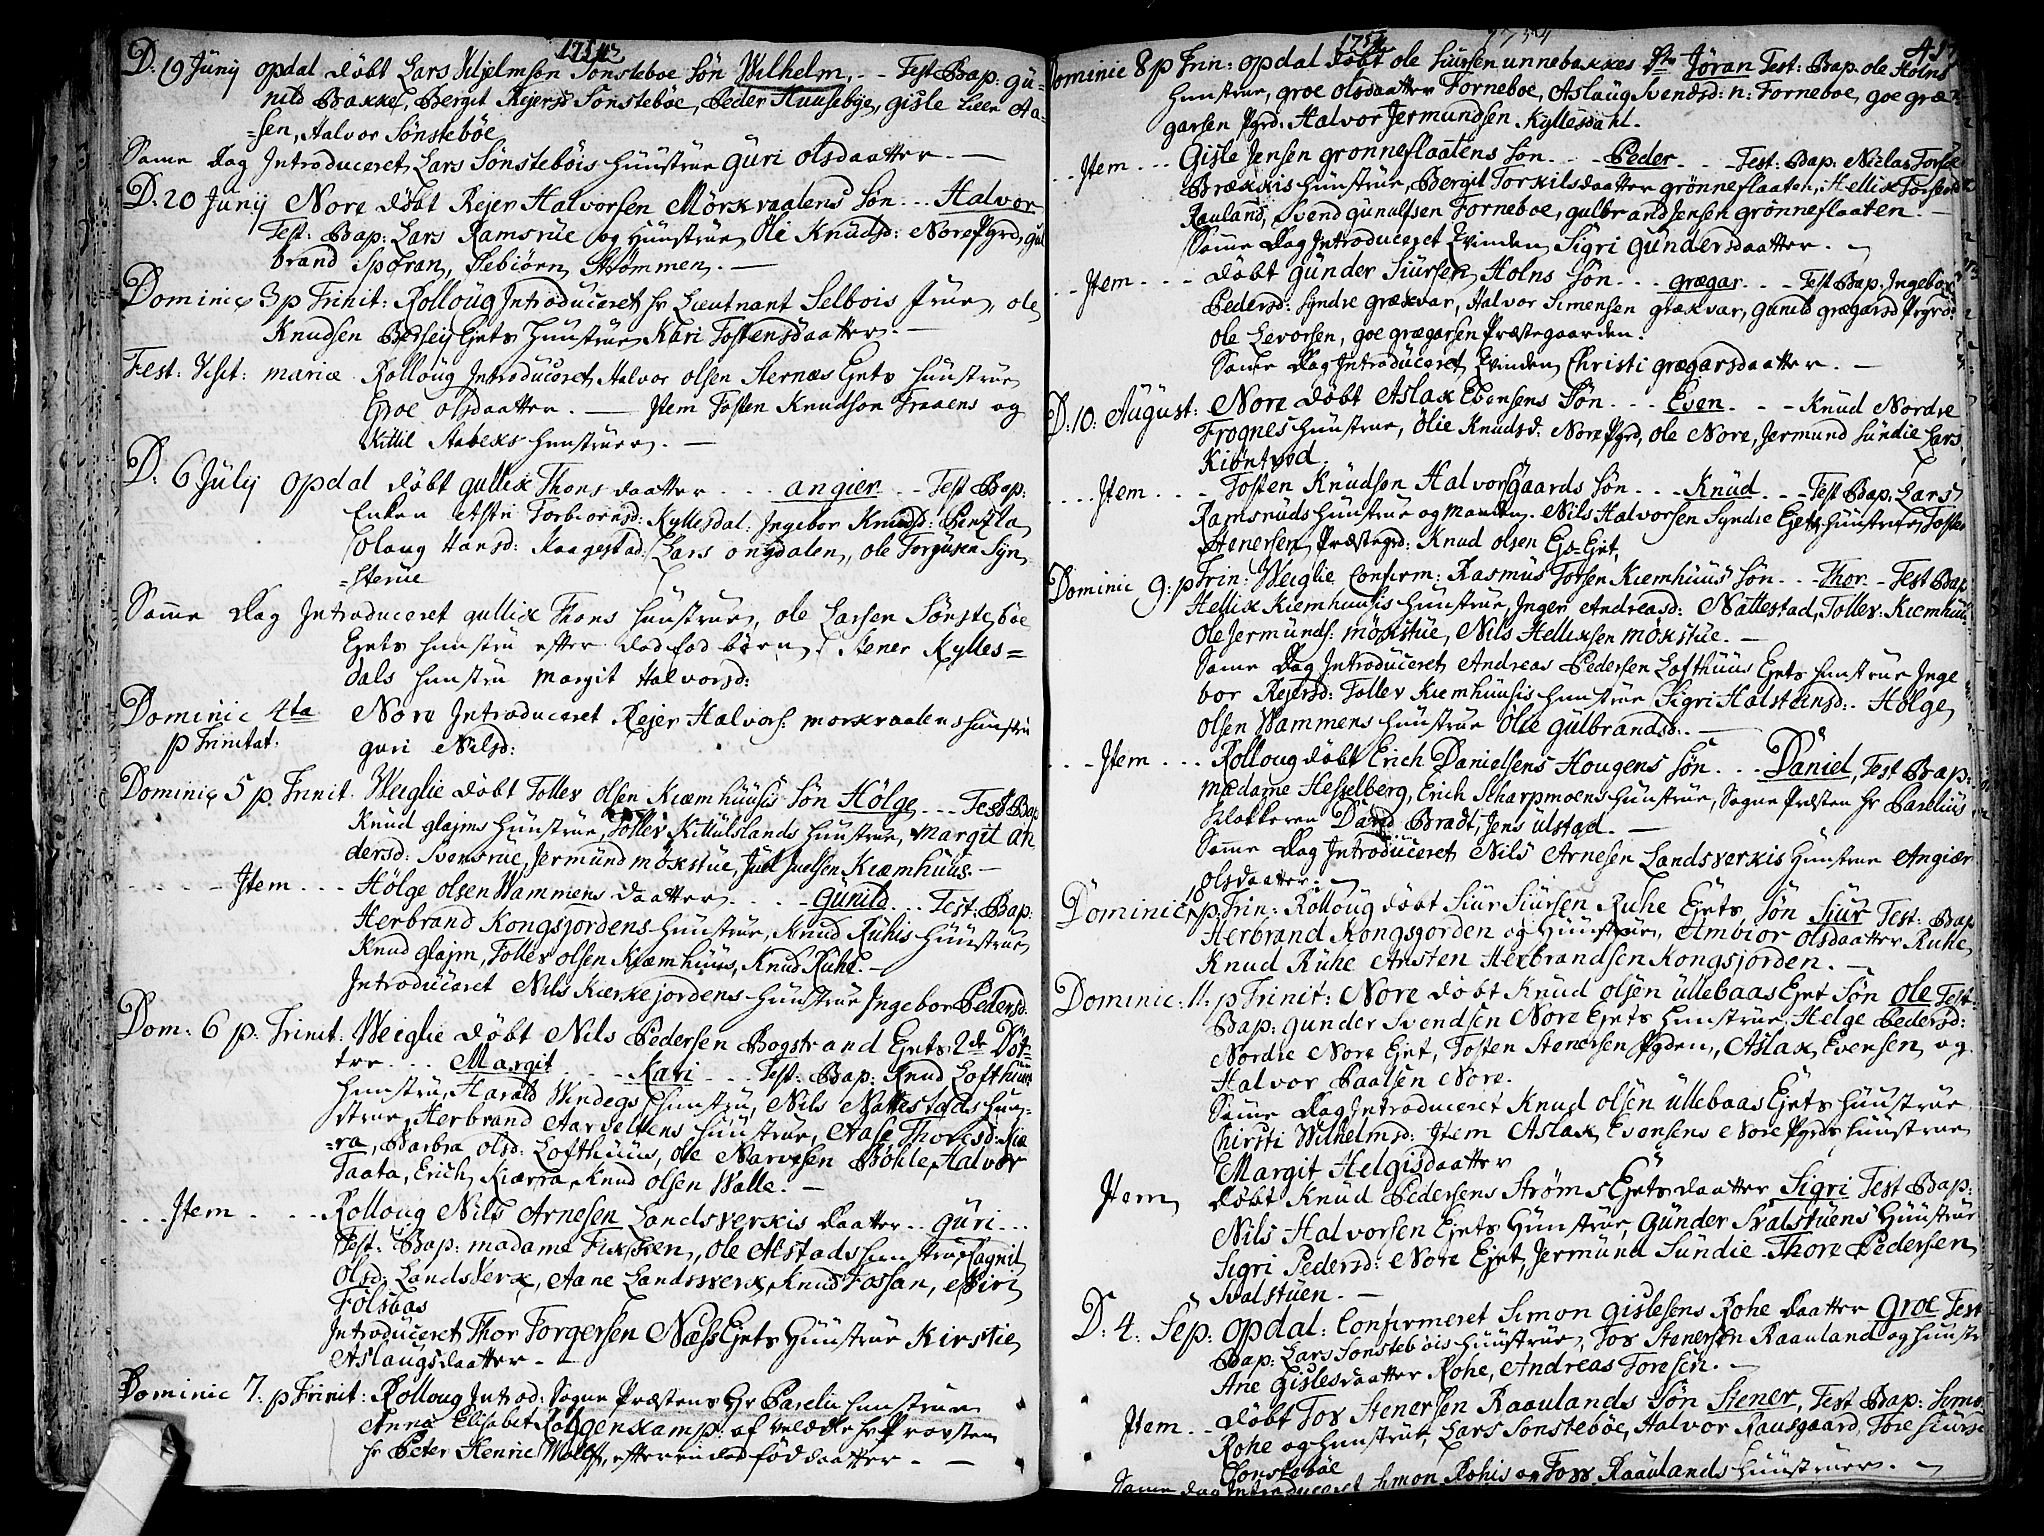 1754
D. 19 Junij opdal døbt Lars Wilhelmsøn Sønsteboe Søn Wilhelm, -- Test: Bap: gu-
nild Bakke, Bergit Reiersd: Sønstebøe, Peder Huusebye, gisle Lien Aa-
=sen, Halvor Sønstebøe
Same Dag Introduceret Lars Sønstebøis Huustrue Guri olsdaatter. —
D: 20 Junij Nore døbt Rejer Halvorsen Mørkvaalens Søn... Halvor
Test: Bap: Lars Ramsrüe og Huustrue, Øli Knudsd: Nore Pgrd, gul
brand Sporan, Aømmen. —
Dominic 3 p Trinit: Rolloug Introduceret hr Lieutnant Selbois Frue, ole
Knudsen Ejets Huustrue Kari Tostensdaatter. —
Fest: Visit: mariæ Rolloug Introduceret Halvor olsen Sternæs Ejets Huustrue
Groe olsdaatter. — Item Tosten Knudsøn Traaens og
Kittil Stabeks Huustruer. —
D. 6 Julij opdal døbt gullik Thons daatter ... angier ... Test Bap:
Enken Astri Torbiornsd: Kyllesdal, Ingebor Knudsd:
olaug Hansd: Kaagestad, Lars ongdalen, ole Torgusen Syn
=sterüe
Same Dag Introduceret gullik Thons Huustrue, ole Larsen Sønstebøe
Ejets Huustru efter dødfød børn, Stener Kylles=
dals Huustru Margit Halvorsd:
Dominic 4ta Nore Introduceret Rejer Halvors: morkvaalens Huustru
p Trinitat: guri Nilsd:
Dominic 5 p. Trinit. Weiglie døbt Tollev olsen Kiæmhuusis Søn Hølge ... Test Bap
Knud glajms Huustrue, Tollev Kittilslands Huustrue, Margit An
dersd: Svensrüe, Jermund møkstue, Juel Juelsen Kiæmhuus. —
- - - - - Item ... Hølge olsen Wammens daatter ... Gunild ... Test: Bap:
Herbrand Kongsjordens Huustrue, Knud Ruhis Huustrue
Knud glajm, Tollev olsen Kiæmhuus, Knud Ruhe. —
Introduceret Nils Kierkejordens Huustrue Ingebor Pedersd:
Dom: 6 p. Trinit: Weiglie døbt Nils Pedersen Bogstrand Ejets 2de Døt=
tre ... Margit ... Kari ... Test: Bap: Knud Lofthuus
Huustru, Harald Windegs Huustru, Nils Nattestads Huu-
strue, Herbrand Aarseltens Huustrue, Aase Thoresd: Kiæ
=ra, Barbra olsd: Lofthuus, ole Narvesen Bøhle, Halvor
Taata, Erich Kiærra, Knud olsen Walle. —
... Item .... Rolloug Nils Arnesen Landsverkis daatter .. guri ...
Test: Bap: madame Ole Alstads Huustrue, Ragnil
Olsd: Landsverk, Aane Landsverk, Knud Fossan, Siri
Følsbas
Introduceret Thor Torgersen Næss Ejets Huustrue Kirstie
Aslaugsdaatter. —
Dominic 7. p Trinit: Rolloug Introd: Sogne Præstens Hr Parelii Huustrue
Anna Elisabet af Hr Provsten
Hr Peter Henric efter en død fød daatter. —
1754 1754
Dominic 8 p Trin: opdal døbt ole Siursen unnebakkes Jøran Test: Bap. ole Holns
Huustrue, groe olsdaatter Torneboe, Aslaug Svendsd: n: Torneboe, goe græ
garsen Pgrd: Halvor Jermundsen Kyllesdahl.
.. Item ... Gisle Jensen grønneflaatens søn ... Peder ... Test: Bap: Niclas
Brækkis Huustrue, Bergit Torkilsdaatter grønneflaaten, Hellik
Rauland, Svend gunulfsen Torneboe, gulbrand Jensen grønneflaaten. —
Same Dag Introduceret Qvinden Sigri Gundersdaatter. —
.. Item .... døbt Gunder Siursen Holns søn ... grægar ... Test Bap. Ingebor
Pedersd: Syndre grækvar, Halvor Simensen grækvar, Gunild grægarsd Prgrd:
ole Levorsen, goe grægarsen Præstegaarden.
Same Dag Introduceret Qvinden Christi grægarsdaatter. —
D. 10. August: Nore døbt Aslak Evensens Søn ... Even ... Knud Nordre
Frognes Huustrue, Ølie Knudsd. Nore Pgrd, ole Nore, Jermund Sundie Lars
.... Item .... Tosten Knudsøn Halvorsgaards søn ... Knud ... Test Bap: Lars
Ramsruds Huustrue og Nils Halvorsen Syndre Ejets Huustrue, Tosten
Stenersen Præstegrd: Knud olsen
Dominic 9: p Trin: Weiglie Confirm: Rasmus Torsen Kiemhuus' Søn ... Thor. - Test Bap
Hellik Kiemhuusis Huustrue, Inger Andreasd: Nattestad, Tollev Kiemhuus:
Ole Jermunds: møkstue, Nils Helliksen møkstue. —
Same Dag Introduceret Andreas Pedersen Lofthuus Ejets Huustrue Inge
bor Rejersd: Tollev Kiemhuusis Huustrue Sigri Halsteinsd: Hølge
olsen Wammens Huustrue Ølie gulbrandsd: —
... Item ... Rolloug døbt Erich Danielsens Hougens Søn ... Daniel, Test Bap:
Madame Hesselberg, Erich Skarpmoens Huustrue, Sogne Præsten Hr Parelius
Klokkeren David Bradt, Jens ulstad. —
Same Dag Introduceret Nils Arnesen Landsverkis Huustrue Angier
olsdaatter. —
Dominic 10 p. Trin: Rolloug døbt Siur Siursen Ruhe Ejets Søn Siur Test: Bap
Herbrand Kongsgorden og Huustrue, Ambior olsdaatter Ruhe,
Knud Ruhe Aristen Herbrandsen Kongsjorden. —
Dominic: 11. p Trinit: Nore døbt Knud olsen üllebaas Ejet Søn Ole Test:
Bap: Gunder Svendsen Nore Ejets Huustrue, Helge Pedersd:
Nordre Nore Ejet, Tosten Stenersen Pgden, Aslak Evensen og
Halvor Paalsen Nore.
Same Dag Introduceret Knud olsen üllebaas Ejets Huustrue
Chirsti Wilhelmsd: Item Aslak Evensens Nore Pgrds Huustrue
Margit Helgisdaatter
Item døbt Knud Pedersens Strøms Ejets daatter Sigri Test Bap:
Nils Halvorsen Ejets Huustrue, Gunder Svalstuens Huustrue
Sigri Pedersd: Nore Ejet, Jermund Sundie, Thore Pedersen
Svalstuen. —
D: 4. Sep: Opdal: Confirmeret Simon Gislesens Rohe daatter Groe Test
Bap: Lars Sønstebøis Huustrue, Tov Stenersen Raauland og Huustr
Ane Gislesdaatter Rohe, Andreas Toresen. —
Item .. døbt Tov Stenersen Raaulands Søn Stener, Test Bap: Simo
Rohe og Huustrue, Lars Sønstebøe, Halvor Rausgaard, Tore Siurse
Sønstebøe
Same dag Introduceret Simon Rohis og Tovs Raaulands Huustruer. —